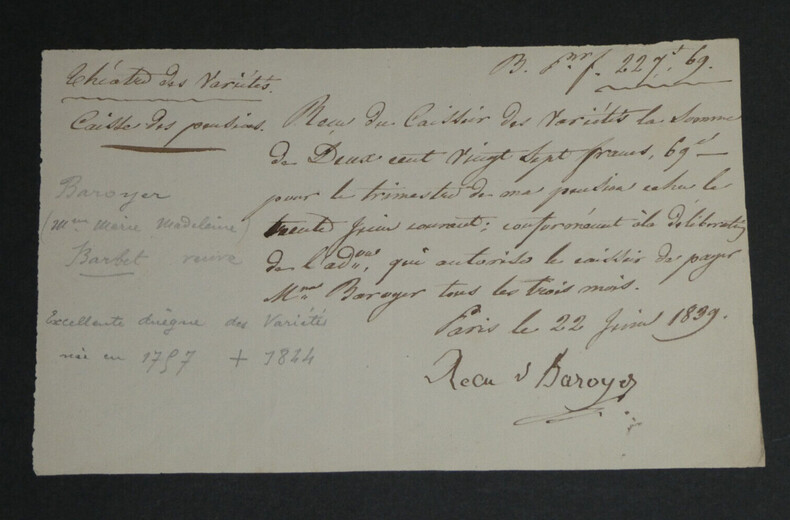 Théatre des Variétés.
B. pr. f. 227. 69.
Caisse des pensions.
Recu du Caissier des Variétés la Somme
de Deux cent vingt sept francs, 69 c
pour le trimestre de ma pension echu le
trente Juin courant; conformément à la déliberation
de l'adon, qui autorise le caissier de payer
Mme Baroyer tous les trois mois.
Paris le 22 Juin 1839.
Recu v Baroyer
Baroyer
(Mme Marie Madeleine)
Barbet veuve
Excellente duègne des Variétés
née en 1757 + 1844